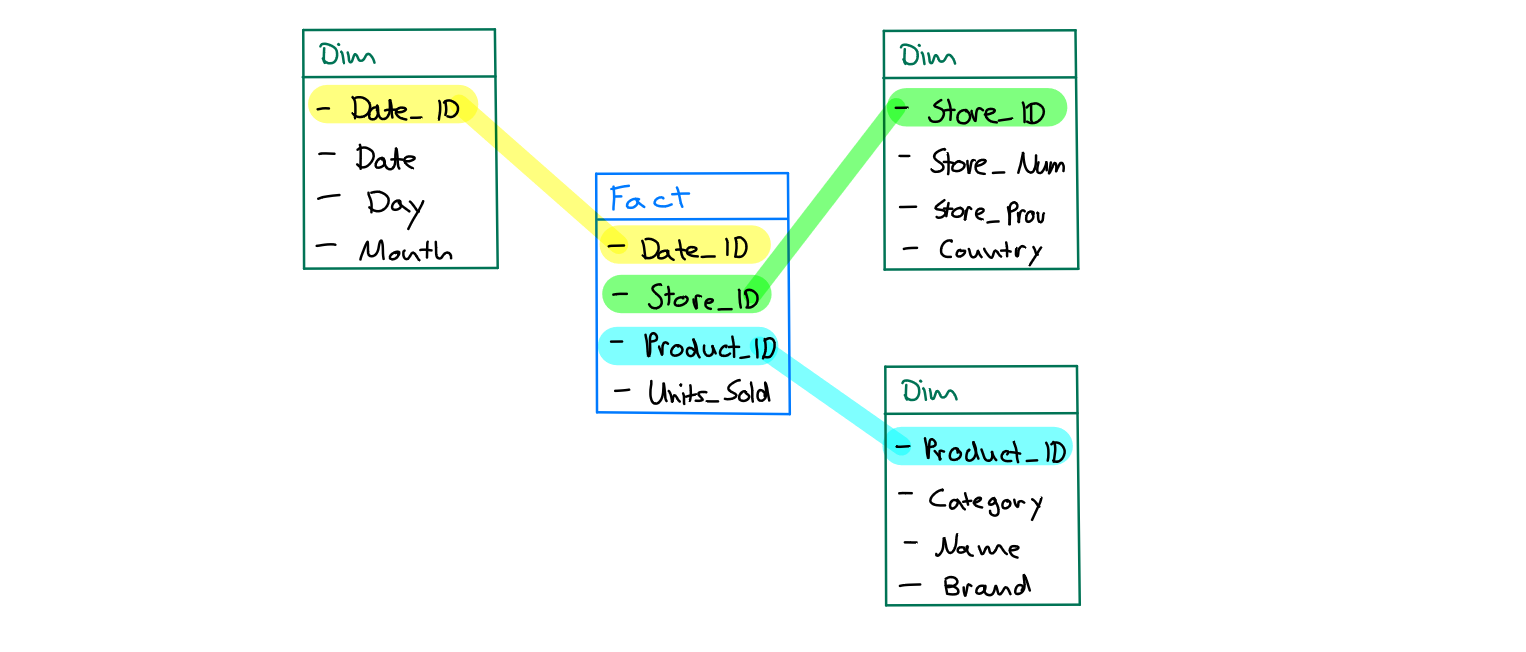 Dim
- Date_ID
- Date
- Day
- Month
Fact
- Date_ID
- Store_ID
- Product_ID
- Units_Sold
Dim
- Store_ID
- Store_Num
- Store_Prov
- Country
Dim
- Product_ID
- Category
- Name
- Brand